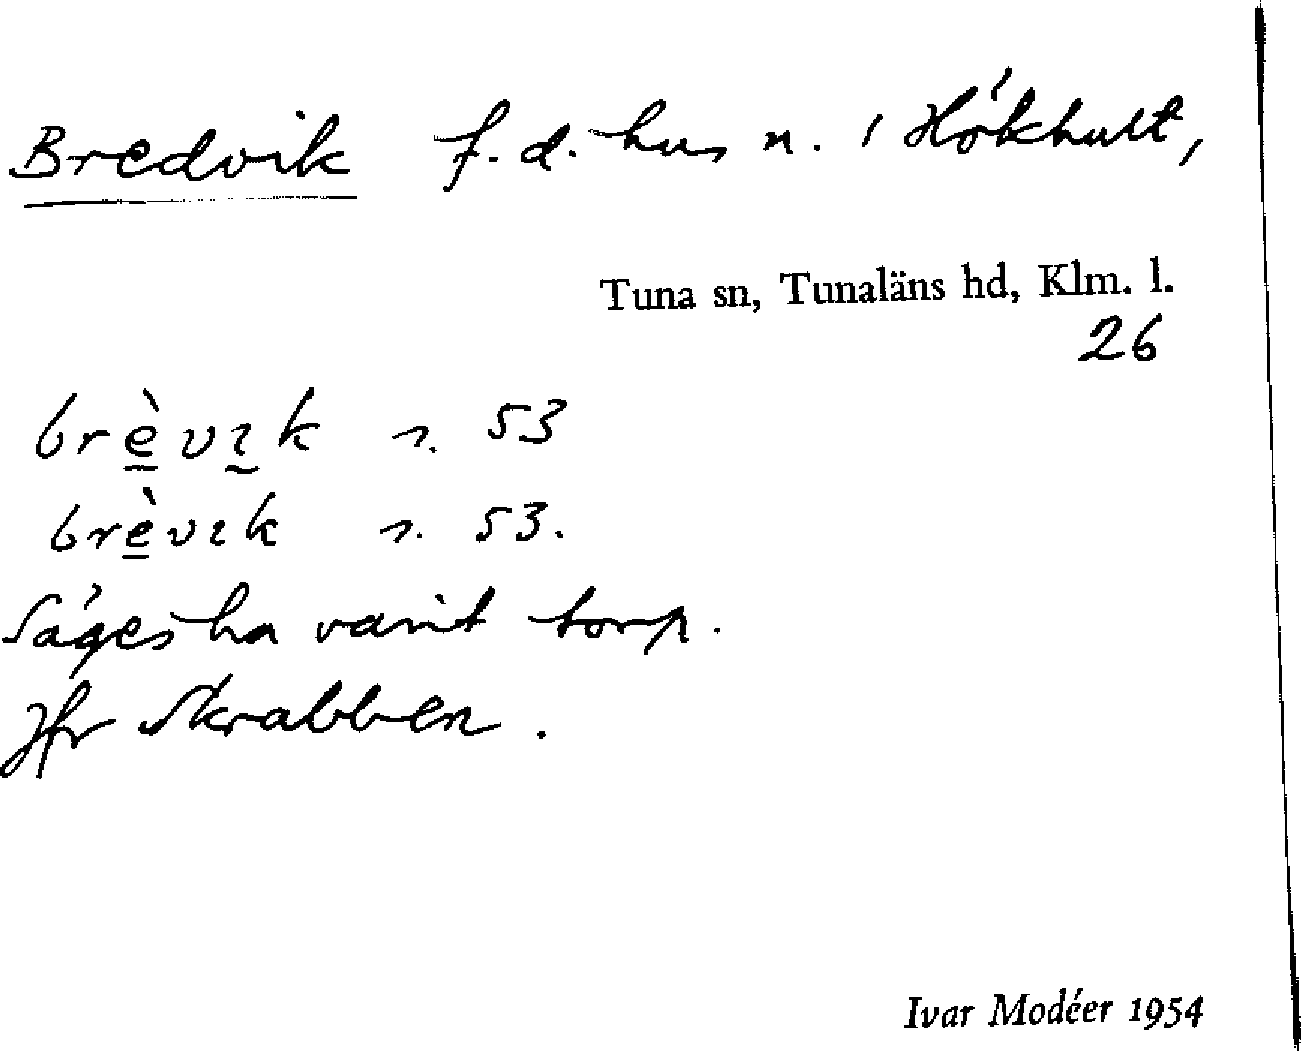 Bredvik f. d. hus n. i Hökhult,
Tuna sn, Tunaläns hd, Klm. l.
26
brèvɪk s. 53
brèvɪk s. 53.
Säges ha varit torp.
Jfr Skrabben.
Ivar Modéer 1954